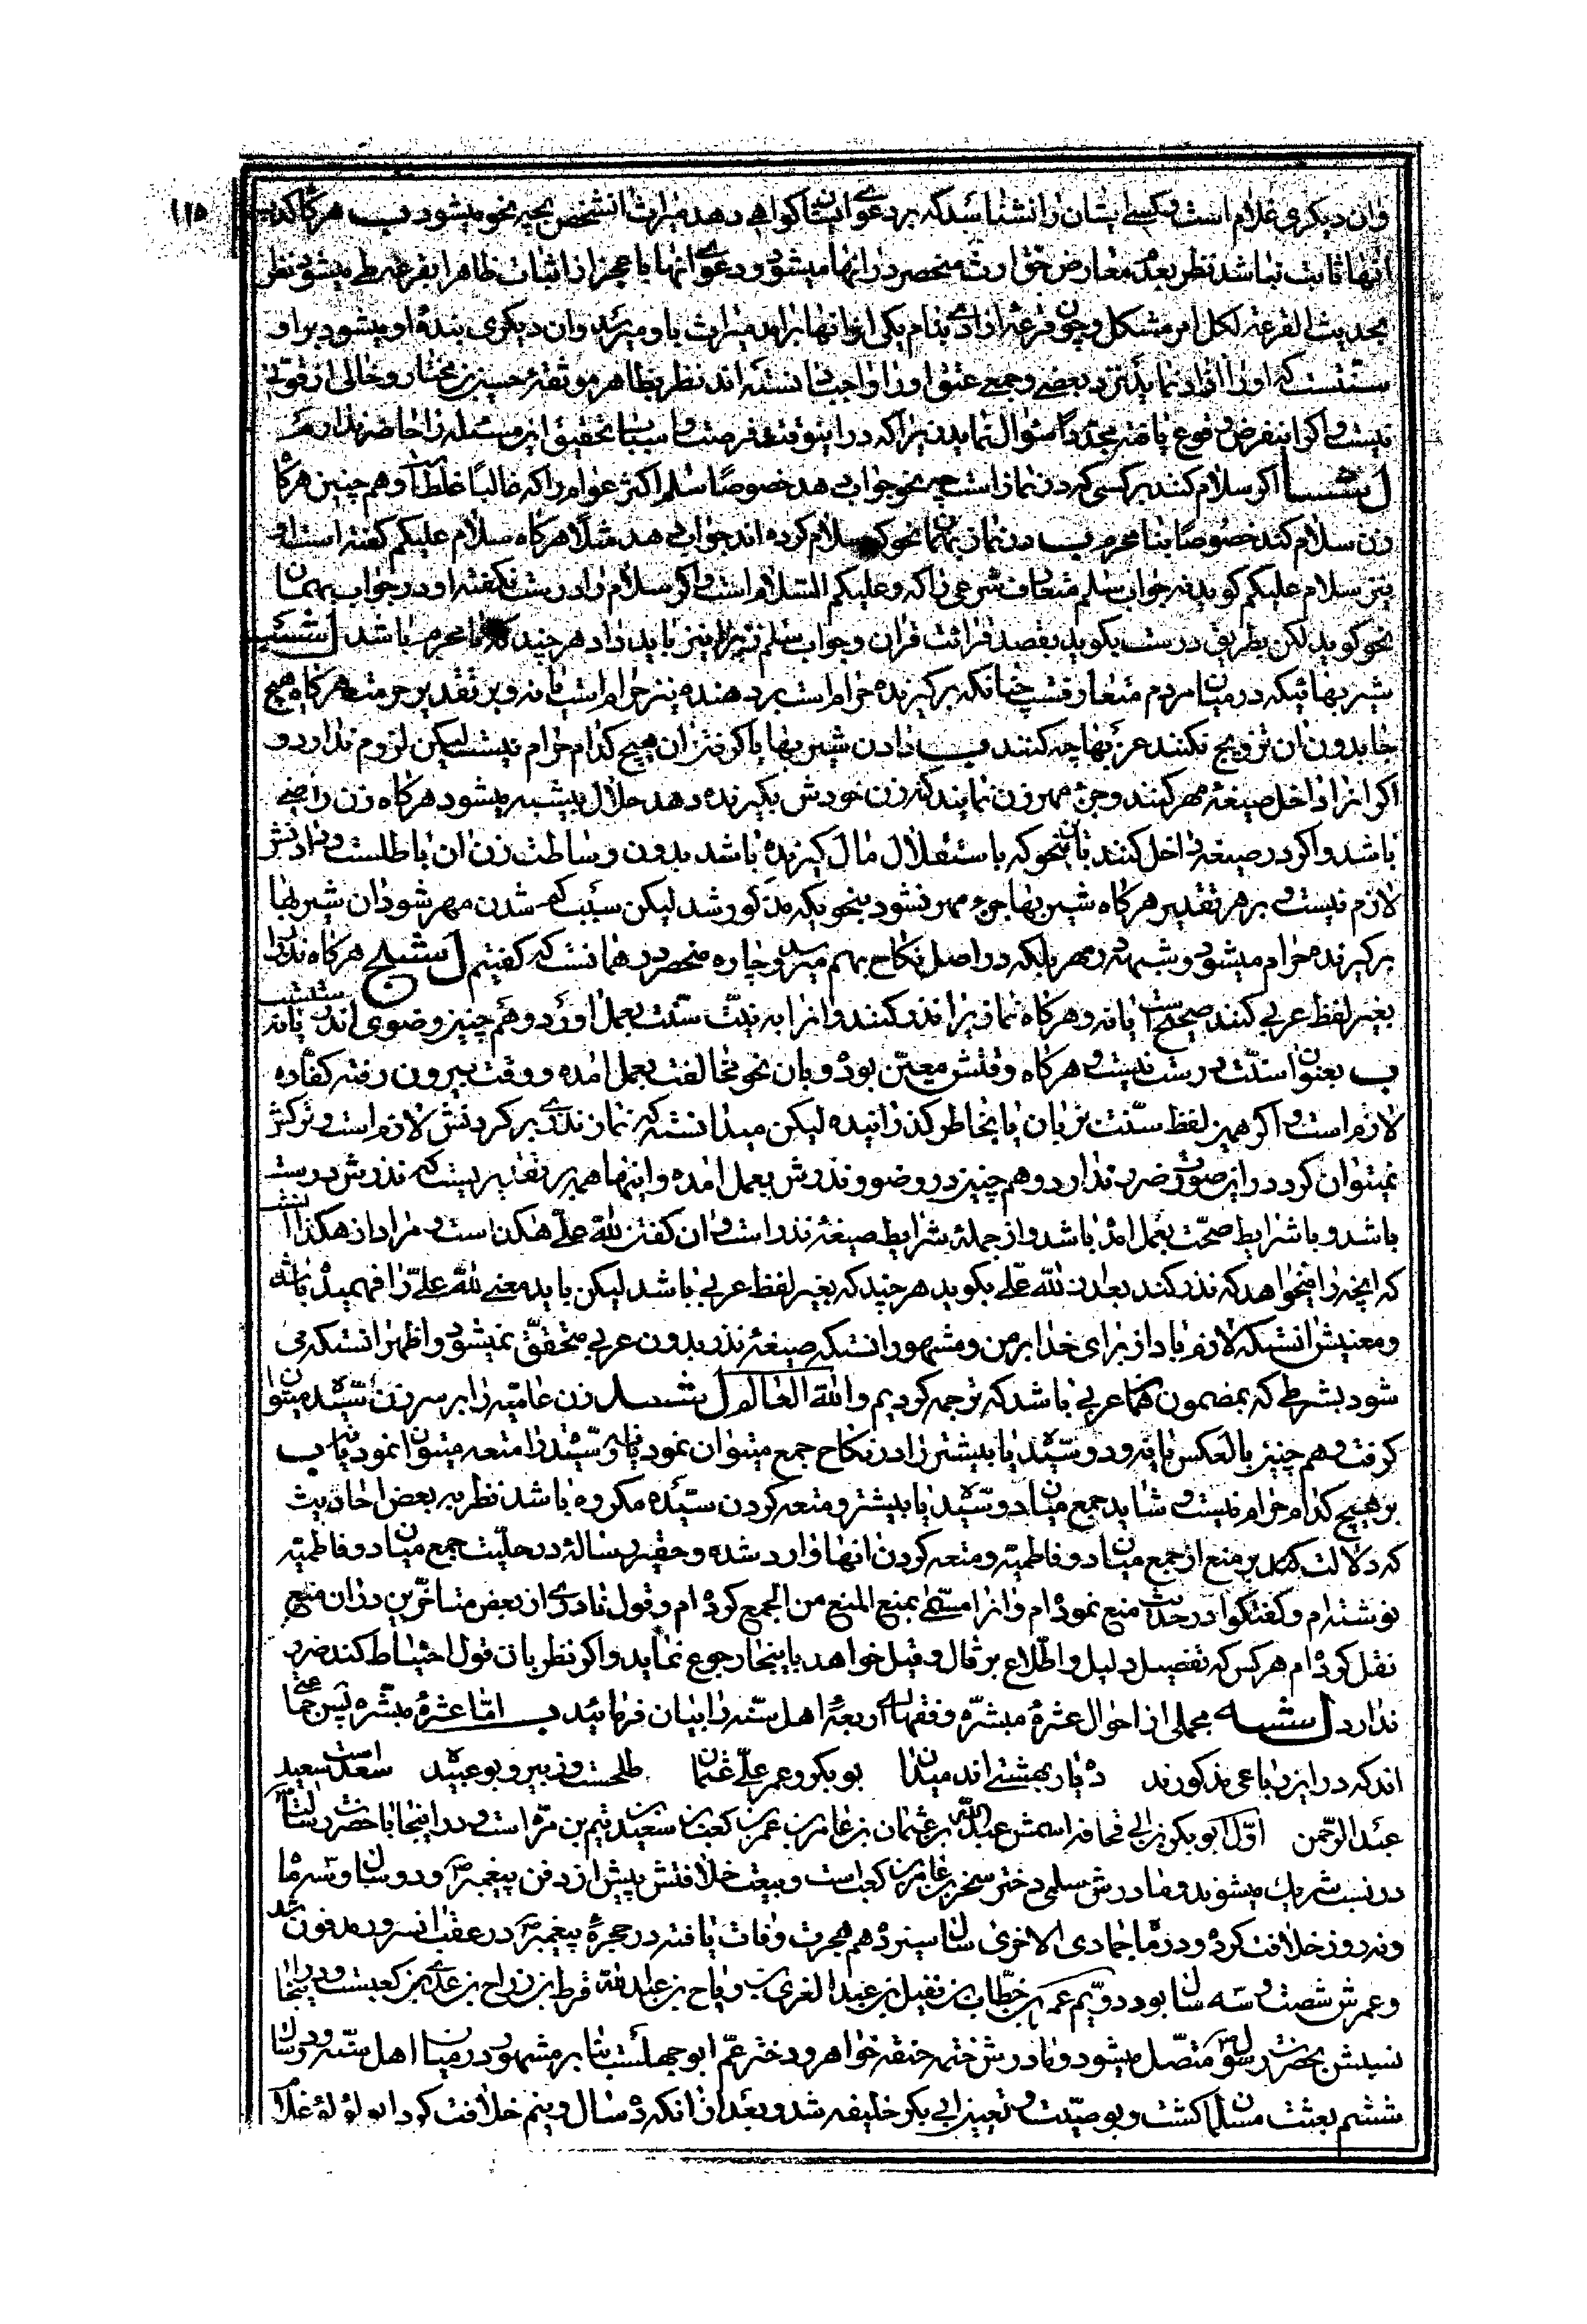 ۱۱۵
وان دیکری غلام است و کسی ایشان را نشناسد که بر دعوی ایشان کواهی دهد میراث انشخص بچه نحو میشود ب هرکاه کدب
انها ثابت نباشد نظر بعد معارض حق ارث منحصر در انها میشود و دعوی انها با عجز از اثبات ظاهرا بقرعه طی میشود نظر
بحدیث القرعة لکل امر مشکل و چون قرعه ازادی بنام یکی از انها برامد میراث باو میرسد وان دیکری بنده او میشود بر او
سنتست که او را ازاد نماید نزد بعضی و جمعی عتق او را واجب دانسته اند نظر بظاهر موثقه حسین بن مختار و خالی از قوتی
نیست و اکر اینفرض وقوع یافته مجددا سؤال نماید زیرا که در اینوقت فرصت و اسباب تحقیق این مسئله را حاضر ندارم
ل اکر سلام کنند بر کسی که در نماز است چه نحو جواب دهد خصوصا سلام اکثر عوام را که غالبا غلط است و هم چنین هرکاه
زن سلام کند خصوصا نامحرم ب در نماز بهمان نحو که سلام کرده اند جواب دهد مثلا هرکاه سلام علیکم کفته است او
نیز سلام علیکم کوید نه جواب سلام متعارف شرعی را که وعلیکم السلام است و اکر سلام را درست نکفته او در جواب بهمان
نحو کوید لکن بطریق درست بکوید بقصد قرائت قران و جواب سلام زن را نیز باید داد هر چند که نامحرم باشد ل
شیر بهائیکه در میان مردم متعارفست چنانکه بر کیرنده حرام است بر دهنده نیز حرام است یا نه و بر تقدیر حرمت هرکاه هیچ
جا بدون ان تزویج نکنند عزبها چه کنند ب دادن شیر بها یا کرفتن ان هیچ کدام حرام نیست لیکن لزوم ندارد و
اکر انرا داخل صیغه مهر کنند و جزء مهر زن نمایند که زن خودش بکیرنده دهد حلال بیشبهه میشود هرکاه زن راضی
باشد و اکر در صیغه داخل کنند بان نحو که باستقلال مال کیرنده باشد بدون وساطت زن ان باطلست و دادنش
لازم نیست و بر هر تقدیر هرکاه شیر بها جزء مهر نشود بنحویکه مذکور شد لیکن سبب کم شدن مهر شود ان شیر بها
بر کیرنده حرام میشود و شبهه در مهر بلکه در اصل نکاح بهم میرسد و چاره منحصر در همانست که کفتیم ل هرکاه نذر را
بغیر لفظ عربی کنند صحیح است یا نه و هرکاه نمازیرا نذر کنند و انرا به نیت سنت بعمل اورد و هم چنین وضوی یا نه
ب بعنوان سنت درست نیست و هرکاه وقتش معین بوده و بان نحو مخالفت بعمل امده و وقت بیرون رفته کفاره
لازم است و اکر همین لفظ سنت بزبان یا بخاطر کذرانیده لیکن میدانسته که نماز نذریرا برکردنش لازم است و ترکش
نمیتوان کرد در این صورت ضرر ندارد و هم چنین در وضو و نذرش بعمل امده و اینها همه بر تقدیریست که نذرش درست
باشد و با شرایط صحت بعمل امده باشد و از جمله شرایط صیغه نذر است و ان کفتن لله علی هکذا است و مراد از هکذا
که انچه را میخواهد که نذر کند بعد از لله علی بکوید هر چند که بغیر لفظ عربی باشد لیکن باید معنی لله علی را فهمیده باشد
و معنیش انستکه لازم باد از برای خدا بر من و مشهور انستکه صیغه نذر بدون عربی متحقق نمیشود و اظهر انستکه می
شود بشرطی که بمضمون همان عربی باشد که ترجمه کردیم والله العالم ل زن عامیه را بر سر زن سیده میتوان
کرفت و هم چنین بالعکس یا نه و دو سیده یا بیشتر را در نکاح جمع میتوان نمود یا نه و سیده را متعه میتوان نمود یا نه ب
بر هیچ کدام حرام نیست و شاید جمع میان دو سیده یا بیشتر و متعه کردن سیده مکروه باشد نظر به بعض احادیث
که دلالت کند بر منع از جمع میان دو فاطمیه و متعه کردن انها وارد شده و حقیر رساله در حلیت جمع میان دو فاطمیه
نوشته ام و کفتکو در حدیث منع نموده ام و انرا مسمی بمنع المنع من الجمع کرده ام و قول نادری از بعض متاخرین در ان منع
نقل کرده ام هر کس که تفصیل دلیل و اطلاع بر قال و قیل خواهد باینجا رجوع نماید و اکر نظر بان قول احتیاط کند ضرر
ندارد ل مجملی از احوال عشره مبشره و فقهای اربعه اهل سنه را بیان فرمائید ب اما عشره مبشره پس جماعتی
اند که در این رباعی مذکورند ده یار بهشتی اند میدان بوبکر و عمر علی عثمان طلحست و زبیر و بوعبیده سعد است سعید
عبد الرحمن اول ابوبکر بن ابی قحافه اسمش عبد الله بن عثمان بن عامر بن عمر بن کعب بن سعید بن تیم بن مره است و در اینجا با حضرت رسالت
در نسب شریک میشوند و مادرش سلمی دختر سخر بن عامر بن کعب است و بیعت خلافتش پیش از دفن پیغمبر و دو سال و سه ماه
و نه روز خلافت کرده و در ماه جمادی الاخری سال سیزدهم هجرت وفات یافته در حجره پیغمبر در عقب انسرور مدفون شد
و عمرش شصت و سه سال بود دویم عمر بن خطاب بن نفیل بن عبد الغری بن ریاح بن عبد الله قرط بن زراح بن عدی بن کعبست و در اینجا
نسبش بحضرت رسول متصل میشود و مادرش ختمه خنقه خواهر و دختر عم ابو جهلست بنا بر مشهور در میان اهل سنه و در سال
ششم بعثت مسلمان کشت و بوصیت و تعیین ابی بکر خلیفه شد و بعد از انکه ده سال و نیم خلافت کرد ابو لؤلؤه غلام